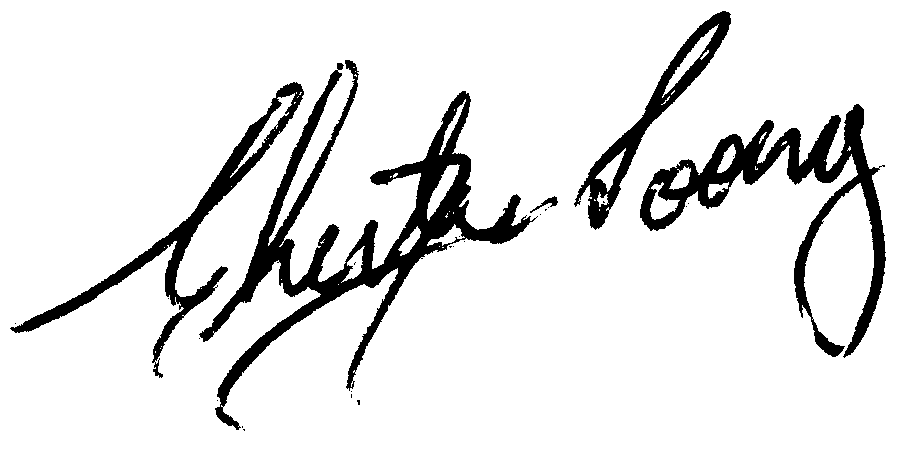 Chester Soong